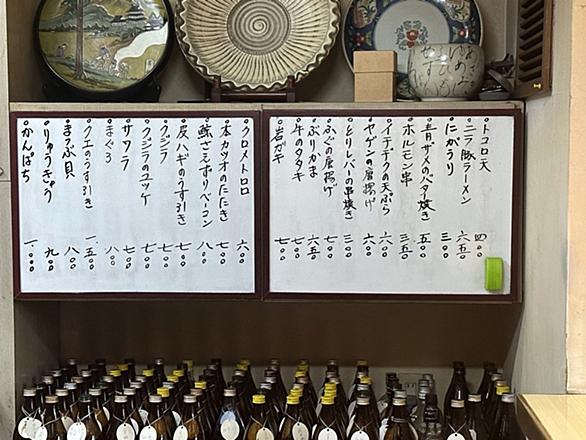 トコロ天 四〇〇
ニラ豚ラーメン 六五〇
にがうり 三〇〇
青ザメのバター焼き 五〇〇
ホルモン串 三五〇
イチヂクの天ぷら 六〇〇
ヤゲンの唐揚げ 六〇〇
とりレバーの串焼き 三〇〇
ふぐの唐揚げ 七〇〇
ぶりかま 六五〇
牛のタタキ 七〇〇
岩ガキ 七〇〇
クロメトロロ 六〇〇
本カツオのたたき 七〇〇
鯨さえずりベーコン 八〇〇
皮ハギのうす引き 七〇〇
クジラ 七〇〇
クジラのユッケ 七〇〇
サワラ 七〇〇
まぐろ 八〇〇
クエのうす引き 一、五〇〇
まつぶ貝 八〇〇
りゅうきゅう 九〇〇
かんぱち 一、〇〇〇